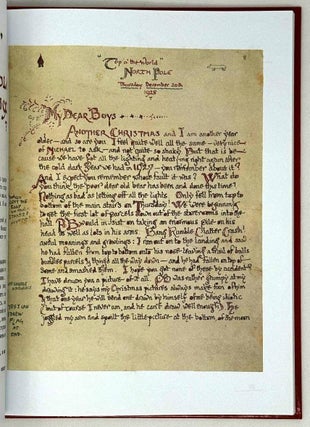 "Top o' the World"
NORTH POLE
Thursday December 20th
1928
My Dear Boys
Another Christmas and I am another year
older — and so are you. I feel quite well all the same — very nice
of Michael to ask — and not quite so shaky. But that is be-
cause we have got all the lighting and heating right again after
the cold dark year we had in 1927 — you remember about it?
And I expect you remember whose fault it was? What do
you think the poor dear old bear has been and done this time?
Nothing as bad as letting off all the lights. Only fell from top to
bottom of the main stairs on Thursday! We were beginning
to get the first lot of parcels down out of the storerooms into the
hall. P.B. would insist on taking an enormous pile on his
head as well as lots in his arms. Bang Rumble Clatter Crash!
awful moanings and growlings: I ran out on to the landing and saw
he had fallen from top to bottom onto his nose leaving a trail of balls
bundles parcels & things all the way down — and he had fallen on top of
some and smashed them. I hope you got none of these by accident?
I have drawn you a picture of it all. P.B. was rather grumpy at my
drawing it: he says my Christmas pictures always make fun of him
& that one year he will send one drawn by himself of me being idiotic
(but of course I never am, and he can't draw well enough). He
jogged my arm and spoilt the little picture at the bottom, of the moon